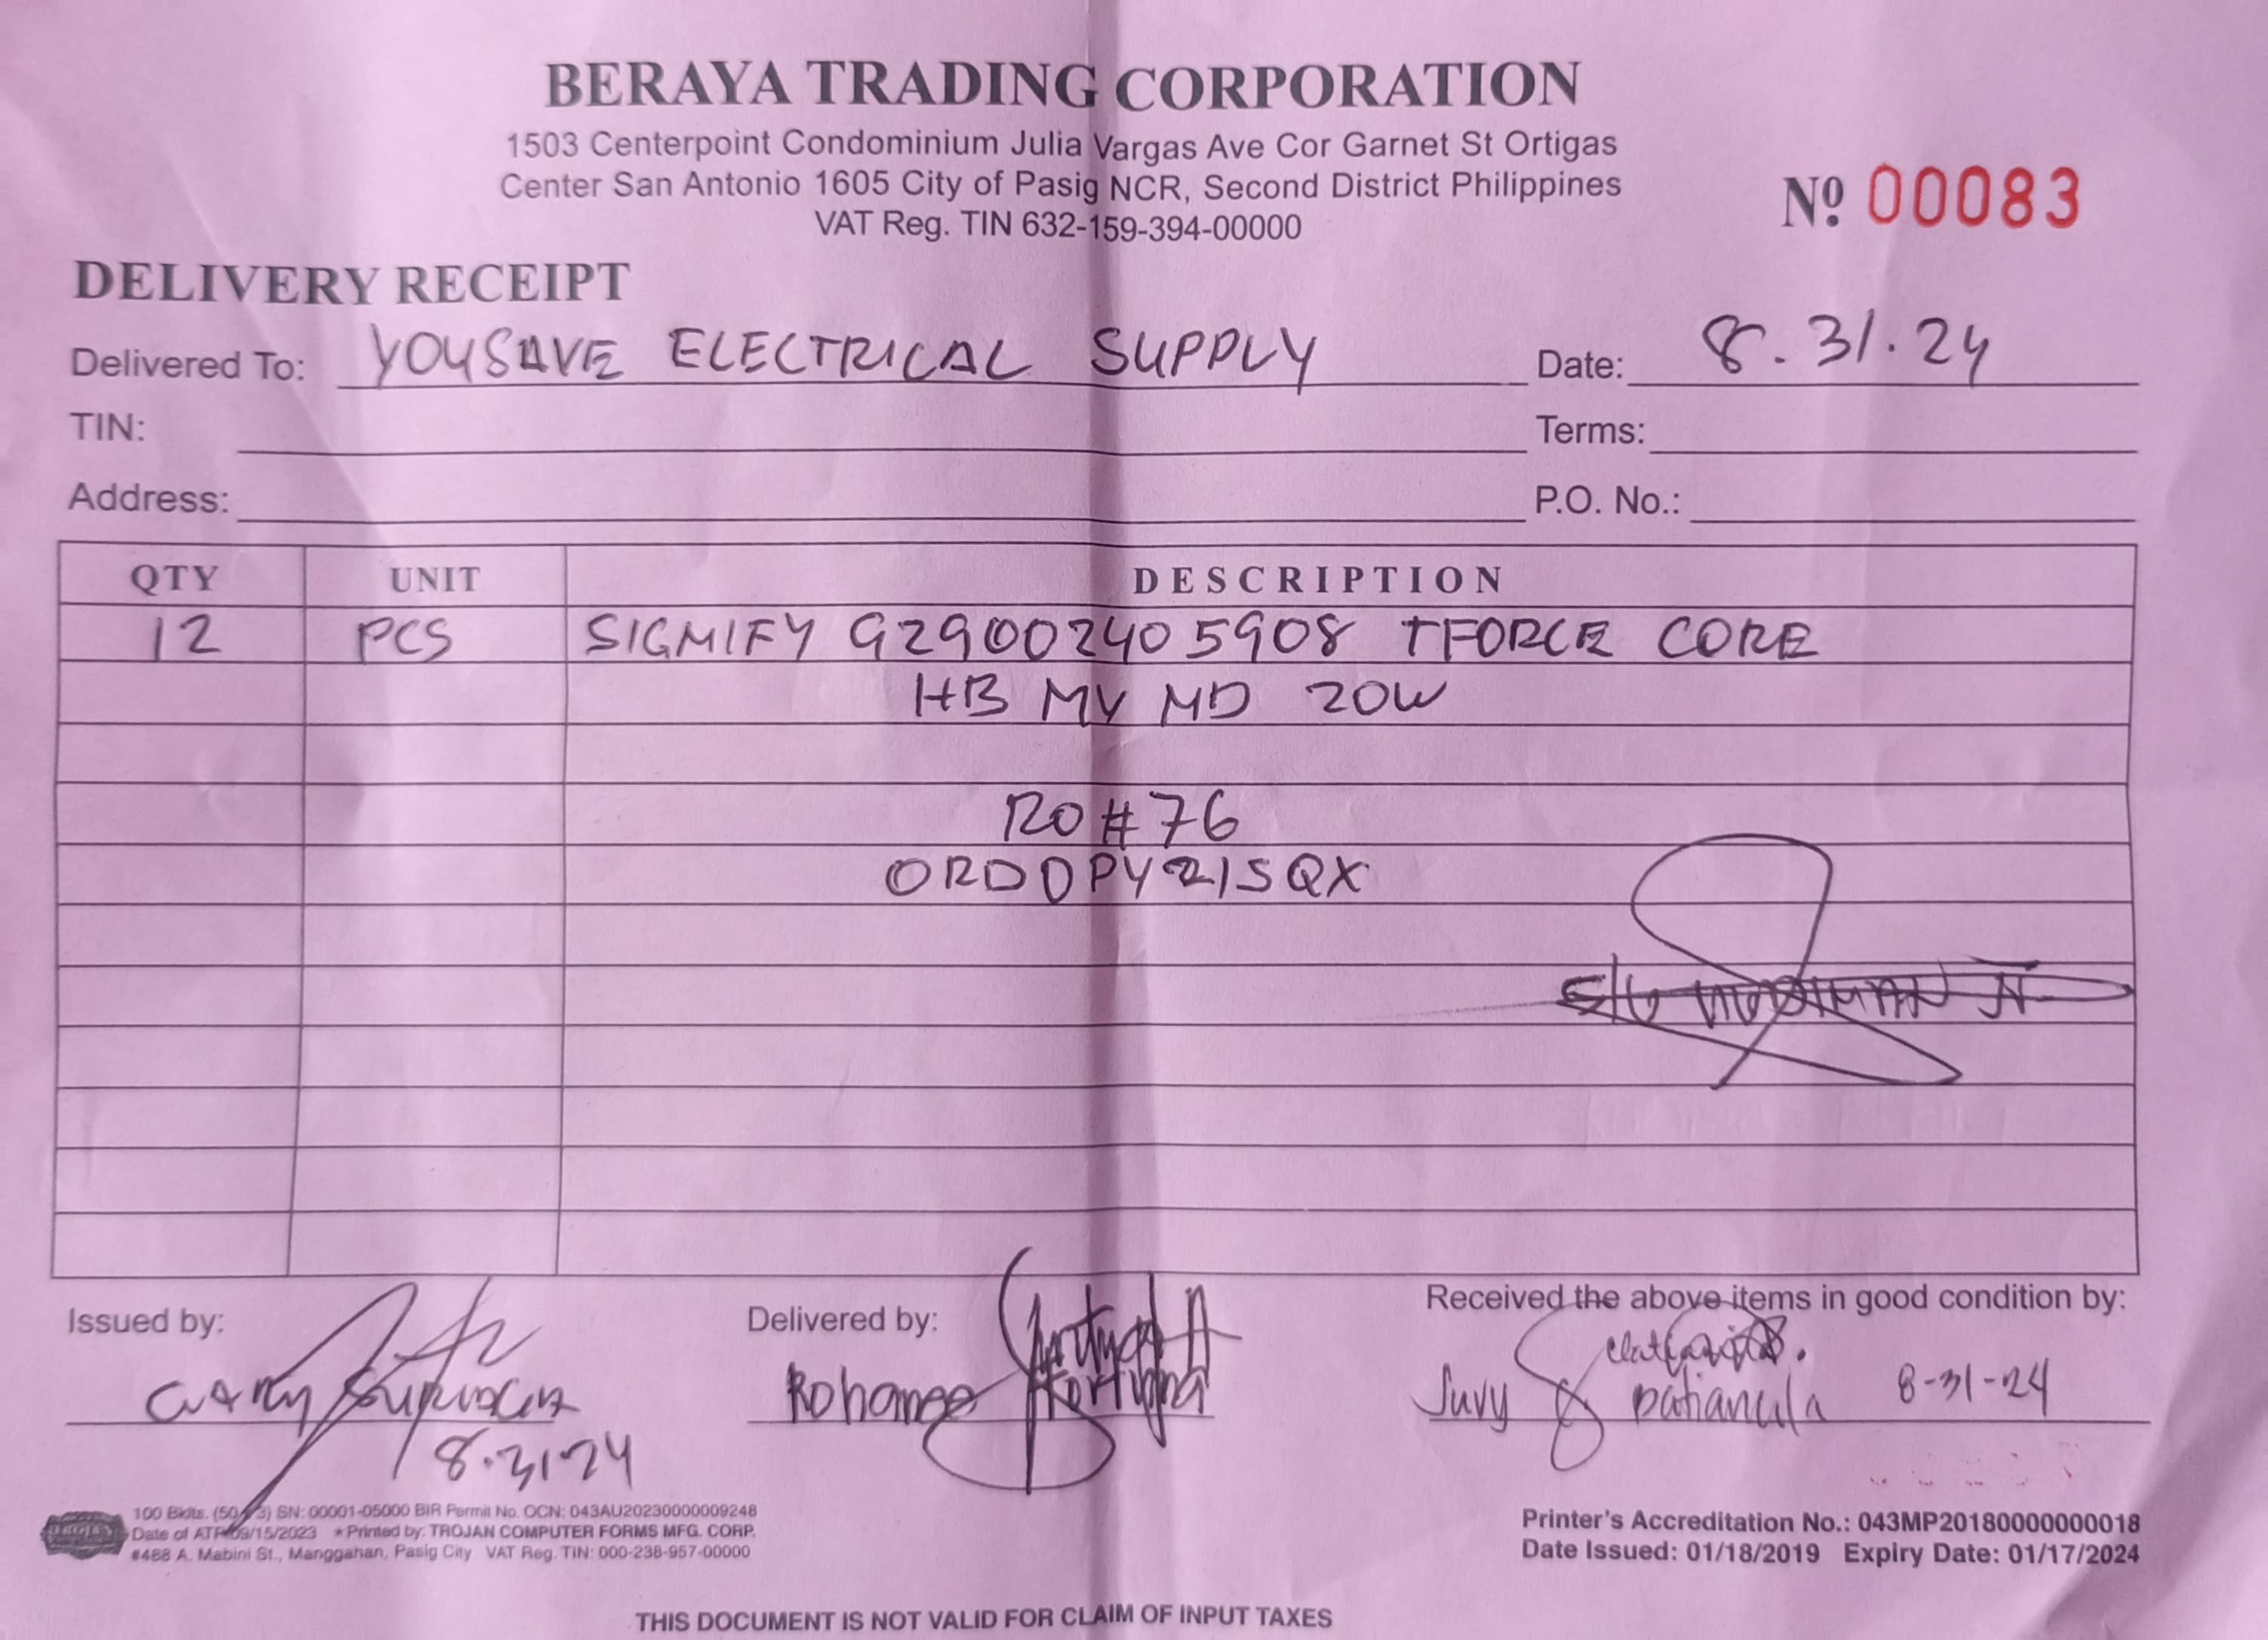 BERAYA TRADING CORPORATION
1503 Centerpoint Condominium Julia Vargas Ave Cor Garnet St Ortigas
Center San Antonio 1605 City of Pasig NCR, Second District Philippines
VAT Reg. TIN 632-159-394-00000
Nº 00083
DELIVERY RECEIPT
Delivered To: YOUSAVE ELECTRICAL SUPPLY Date: 8.31.24
TIN: Terms:
Address: P.O. No.:
QTY UNIT DESCRIPTION
12 PCS SIGMIFY 929002405908 TFORCE CORE
HB MV MD 20W
RO#76
ORDDPY21SQX
Issued by: Delivered by: Received the above items in good condition by:
Juvy 8-31-24
8.31.24
100 Bklts. SN: 00001-05000 BIR Permit No. OCN: 043AU20230000009248
Date of ATP 09/15/2023 * Printed by: TROJAN COMPUTER FORMS MFG. CORP.
#488 A. Mabini St., Manggahan, Pasig City VAT Reg. TIN: 000-238-957-00000
Printer's Accreditation No.: 043MP20180000000018
Date Issued: 01/18/2019 Expiry Date: 01/17/2024
THIS DOCUMENT IS NOT VALID FOR CLAIM OF INPUT TAXES